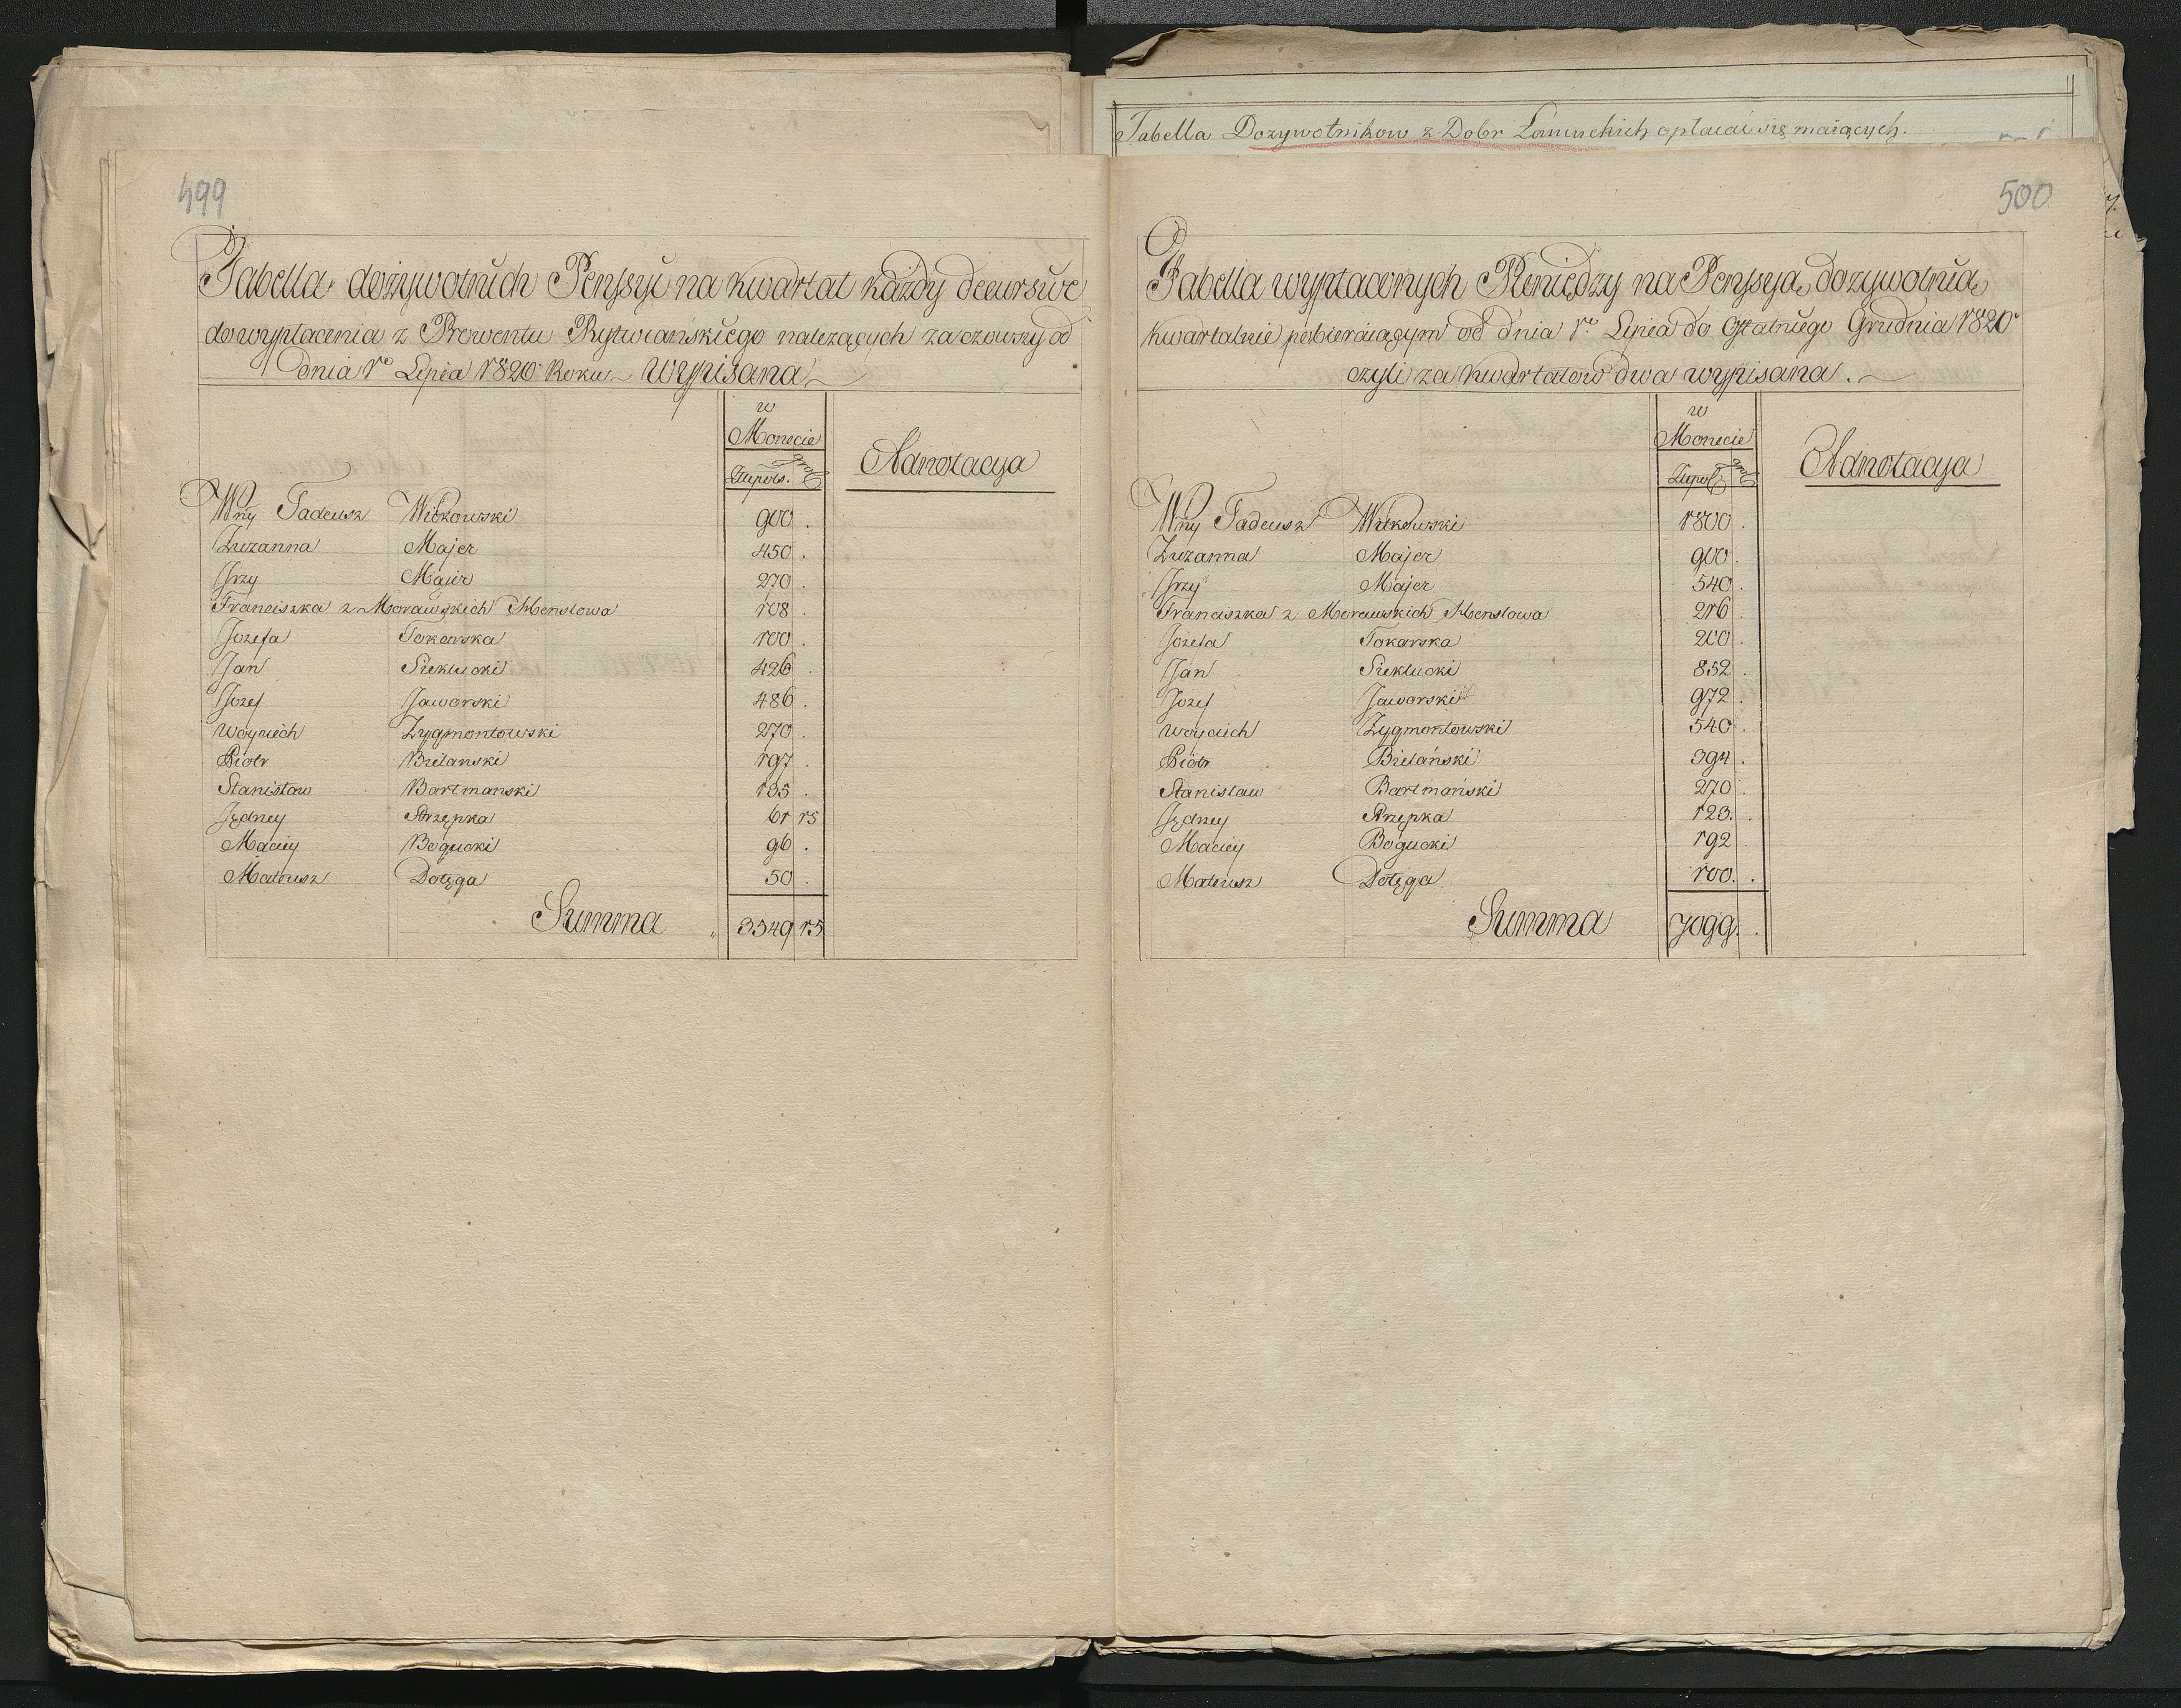 Tabella Dozywotnikow z Dobr Łancuckich opłacać się maiących.
499
Tabella dożywotnich Pensyi na kwartał każdy decursive
do wypłacenia z Prowentu Rytwiańskiego należących zacząwszy od
dnia 1º Lipca 1820 Roku Wypisana
w
Monecie
Złłpols. gro
Adnotacya
Wny Tadeusz Witkowski 900 .
Zuzanna Majer 450 .
Jrzy Majer 270 .
Franciszka z Morawskich Henslowa 108 .
Jozefa Tokarska 100 .
Jan Sieklucki 426 .
Jozef Jaworski 486 .
Woyciech Zygmontowski 270 .
Piotr Bielanski 197 .
Stanisław Bartmanski 135 .
Jędrzey Strzępka 61 15
Maciey Bogucki 96 .
Mateusz Dołęga 50 .
Summa 3549 15
500
Tabella wypłaconych Pieniędzy na Pensyą dożywotnią
kwartalnie pobieraiącym od dnia 1º Lipca do Ostatniego Grudnia 1820
czyli za kwartałow dwa wypisana.
w
Monecie
Złłpol gro
Adnotacya
Wny Tadeusz Witkowski 1800 .
Zuzanna Majer 900 .
Jrzy Majer 540 .
Franciszka z Morawskich Henslowa 216 .
Jozefa Tokarska 200 .
Jan Sieklucki 852 .
Jozef Jaworski 972 .
Woyciech Zygmontowski 540 .
Piotr Bielański 394 .
Stanisław Bartmański 270 .
Jędrzey Strzępka 123. .
Maciey Bogucki 192
Mateusz Dołęga 100. .
Summa 7099. .